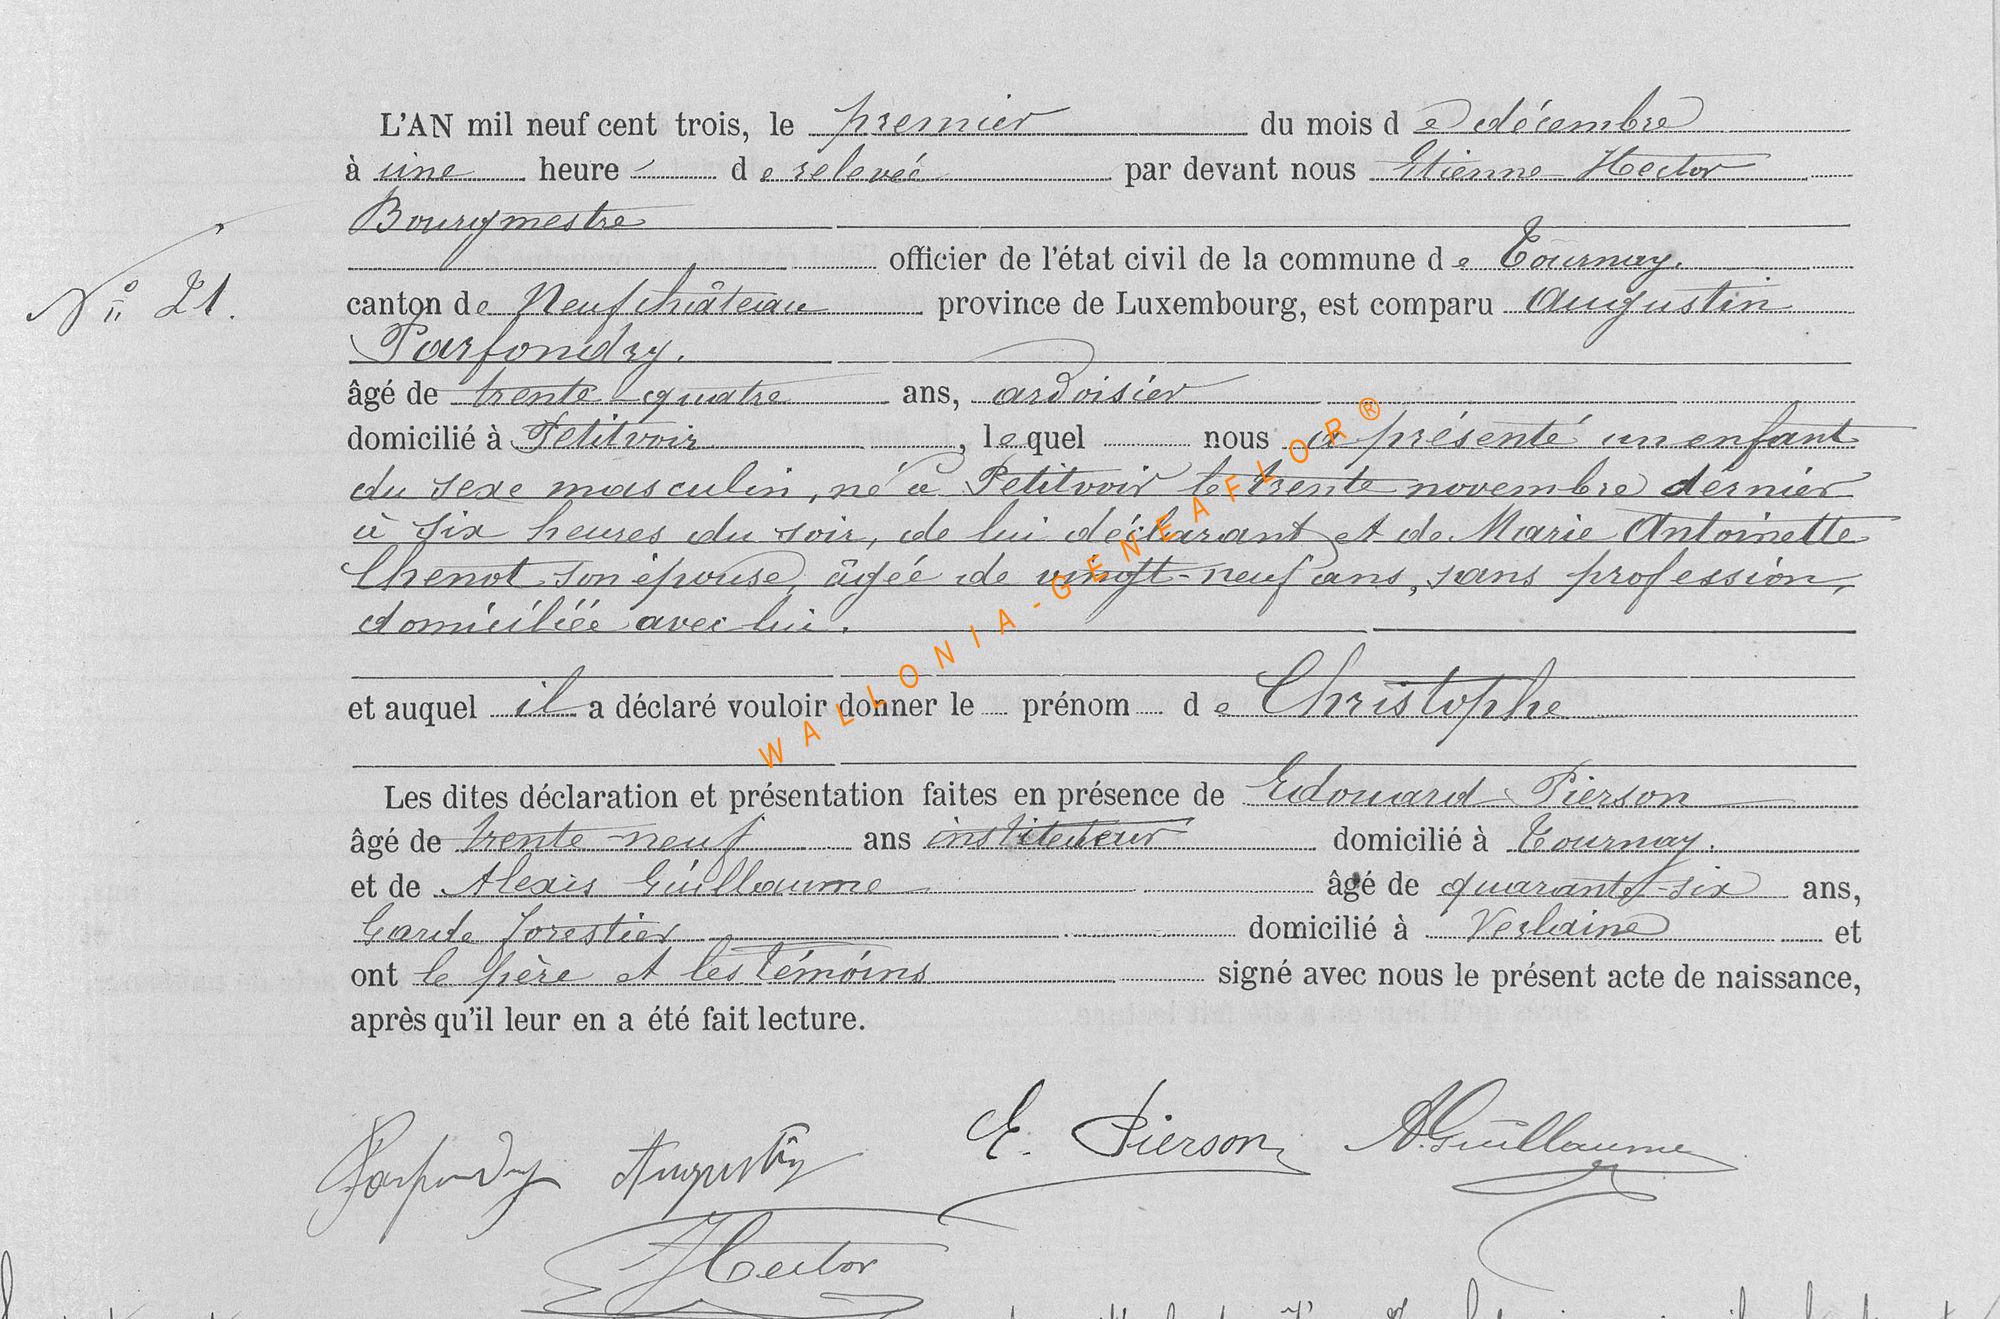 L'AN mil neuf cent trois, le premier du mois de décembre
à une heure de relevée par devant nous Etienne Hector
Bourgmestre
officier de l'état civil de la commune de Tournay.
N° 21.
canton de Neufchâteau province de Luxembourg, est comparu Augustin
Parfondry.
âgé de trente-quatre ans, ardoisier
domicilié à Petitvoir, lequel nous a présenté un enfant
du sexe masculin, né à Petitvoir le trente novembre dernier
à six heures du soir, de lui déclarant et de Marie Antoinette
Chenot son épouse, âgée de vingt-neuf ans, sans profession,
domiciliée avec lui.
et auquel il a déclaré vouloir donner le prénom de Christophe
WALLONIA-GENEAFLOR®
Les dites déclaration et présentation faites en présence de Edouard Pierson
âgé de trente-neuf ans instituteur domicilié à Tournay.
et de Alexis Guillaume âgé de quarante-six ans,
Garde forestier domicilié à Verlaine et
ont le père et les témoins signé avec nous le présent acte de naissance,
après qu'il leur en a été fait lecture.
Parfondry Augustin E. Pierson A. Guillaume
Hector